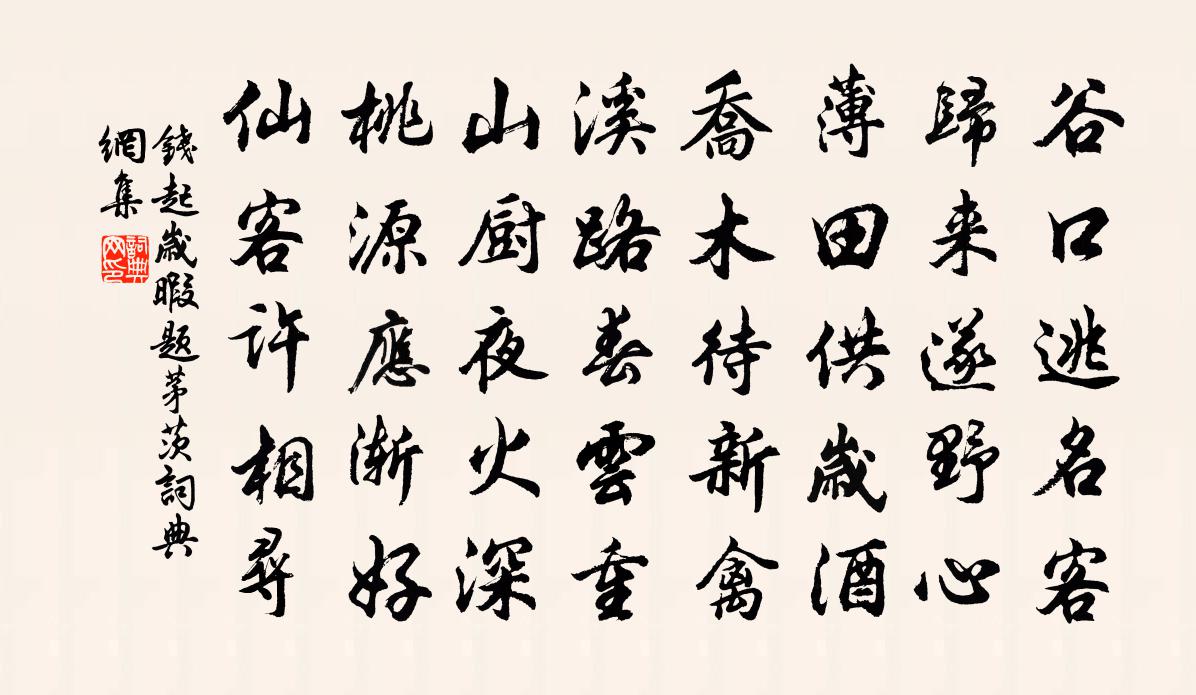 谷口逃名客
歸来遂野心
薄田供歲酒
喬木待新禽
溪路春雲重
山厨夜火深
桃源應漸好
仙客許相尋
錢起歲暇題茅茨詞典
網集
詞典网印